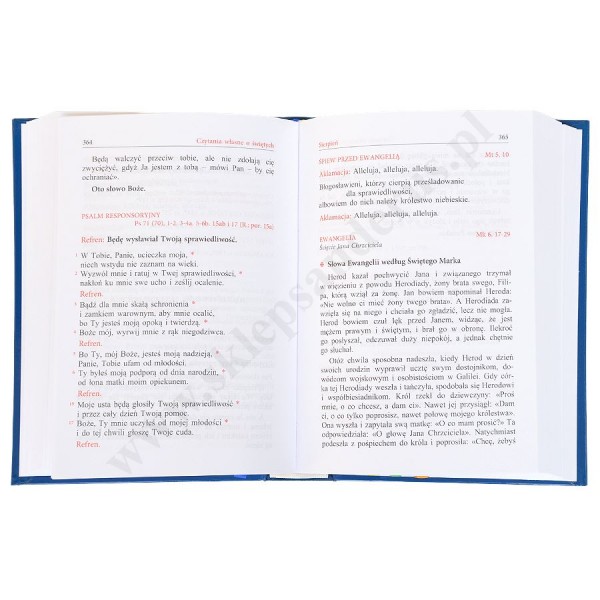 364 Czytania własne o świętych
Będą walczyć przeciw tobie, ale nie zdołają cię
zwyciężyć, gdyż Ja jestem z tobą – mówi Pan – by cię
ochraniać».
Oto słowo Boże.
PSALM RESPONSORYJNY
Ps 71 (70), 1-2. 3-4a. 5-6b. 15ab i 17 (R.: por. 15a)
Refren: Będę wysławiał Twoją sprawiedliwość.
W Tobie, Panie, ucieczka moja, *
niech wstydu nie zaznam na wieki.
Wyzwól mnie i ratuj w Twej sprawiedliwości, *
nakłoń ku mnie swe ucho i ześlij ocalenie.
Refren.
Bądź dla mnie skałą schronienia *
i zamkiem warownym, aby mnie ocalić,
bo Ty jesteś moją opoką i twierdzą. *
Boże mój, wyrwij mnie z rąk niegodziwca.
Refren.
Bo Ty, mój Boże, jesteś moją nadzieją, *
Panie, Tobie ufam od młodości.
Ty byłeś moją podporą od dnia narodzin, *
od łona matki moim opiekunem.
Refren.
Moje usta będą głosiły Twoją sprawiedliwość *
i przez cały dzień Twoją pomoc.
Boże, Ty mnie uczyłeś od mojej młodości *
i do tej chwili głoszę Twoje cuda.
Refren.
Sierpień 365
ŚPIEW PRZED EWANGELIĄ Mt 5, 10
Aklamacja: Alleluja, alleluja, alleluja.
Błogosławieni, którzy cierpią prześladowanie
dla sprawiedliwości,
albowiem do nich należy królestwo niebieskie.
Aklamacja: Alleluja, alleluja, alleluja.
EWANGELIA Mk 6, 17-29
Ścięcie Jana Chrzciciela
Słowa Ewangelii według Świętego Marka
Herod kazał pochwycić Jana i związanego trzymał
w więzieniu z powodu Herodiady, żony brata swego, Fili-
pa, którą wziął za żonę. Jan bowiem napominał Heroda:
«Nie wolno ci mieć żony twego brata». A Herodiada za-
wzięła się na niego i chciała go zgładzić, lecz nie mogła.
Herod bowiem czuł lęk przed Janem, widząc, że jest
mężem prawym i świętym, i brał go w obronę. Ilekroć
go posłyszał, odczuwał duży niepokój, a jednak chętnie
go słuchał.
Otóż chwila sposobna nadeszła, kiedy Herod w dzień
swoich urodzin wyprawił ucztę swym dostojnikom, do-
wódcom wojskowym i osobistościom w Galilei. Gdy cór-
ka tej Herodiady weszła i tańczyła, spodobała się Herodowi
i współbiesiadnikom. Król rzekł do dziewczyny: «Proś
mnie, o co chcesz, a dam ci». Nawet jej przysiągł: «Dam
ci, o co tylko poprosisz, nawet połowę mojego królestwa».
Ona wyszła i zapytała swą matkę: «O co mam prosić?» Ta
odpowiedziała: «O głowę Jana Chrzciciela». Natychmiast
podeszła z pośpiechem do króla i poprosiła: «Chcę, żebyś